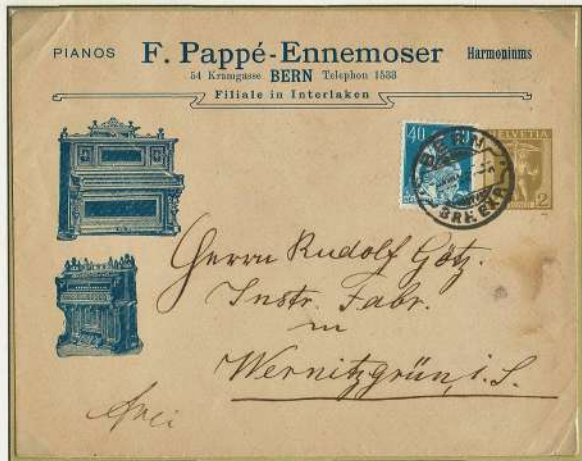 PIANOS F. Pappé-Ennemoser Harmoniums
54 Kramgasse BERN Telephon 1533
Filiale in Interlaken
40
HELVETIA
BERN
BRF. EXP.
2
Herrn Rudolf Götz.
Instr. Fabr.
in
Wernitzgrün, i. S.